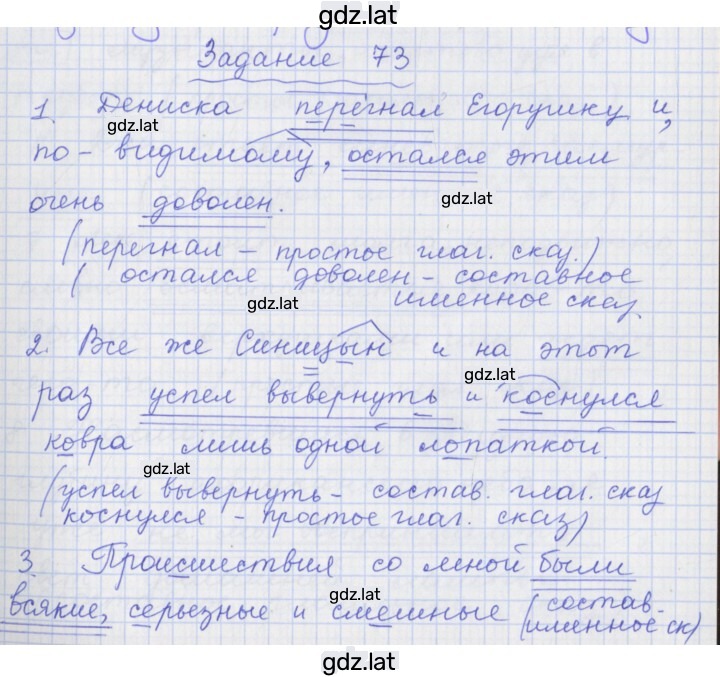 gdz.lat
Задание 73
1. Дениска перегнал Егорушку и,
gdz.lat
по-видимому, остался этим
gdz.lat
очень доволен.
(перегнал – простое глаг. сказ.)
( остался доволен – составное
gdz.lat
именное сказ.
2. Все же Синицын и на этот
gdz.lat
раз успел вывернуть и коснулся
ковра лишь одной лопаткой.
gdz.lat
(успел вывернуть – состав. глаг. сказ
коснулся – простое глаг. сказ)
3. Происшествия со мной были
gdz.lat
всякие, серьезные и смешные (состав.
именное ск)
gdz.lat